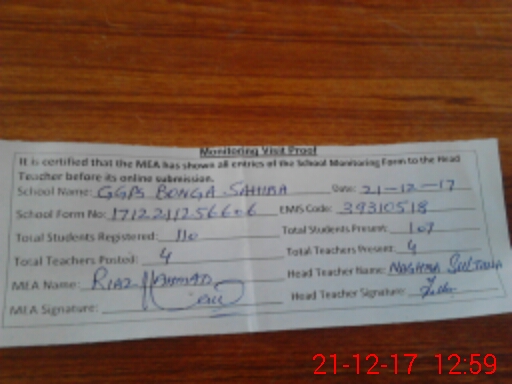 Monitoring Visit Proof
It is certified that the MEA has shown all entries of the School Monitoring Form to the Head
Teacher before its online submission.
School Name: GGPS BONGA SAHIBA Date: 21-12-17
School Form No: EMIS Code: 39310518
Total Students Registered: 110 Total Students Present: 107
Total Teachers Posted: 4 Total Teachers Present: 4
MEA Name: RIAZ AHMAD Head Teacher Name: NAGHMA SULTANA
MEA Signature: Head Teacher Signature:
21-12-17 12:59